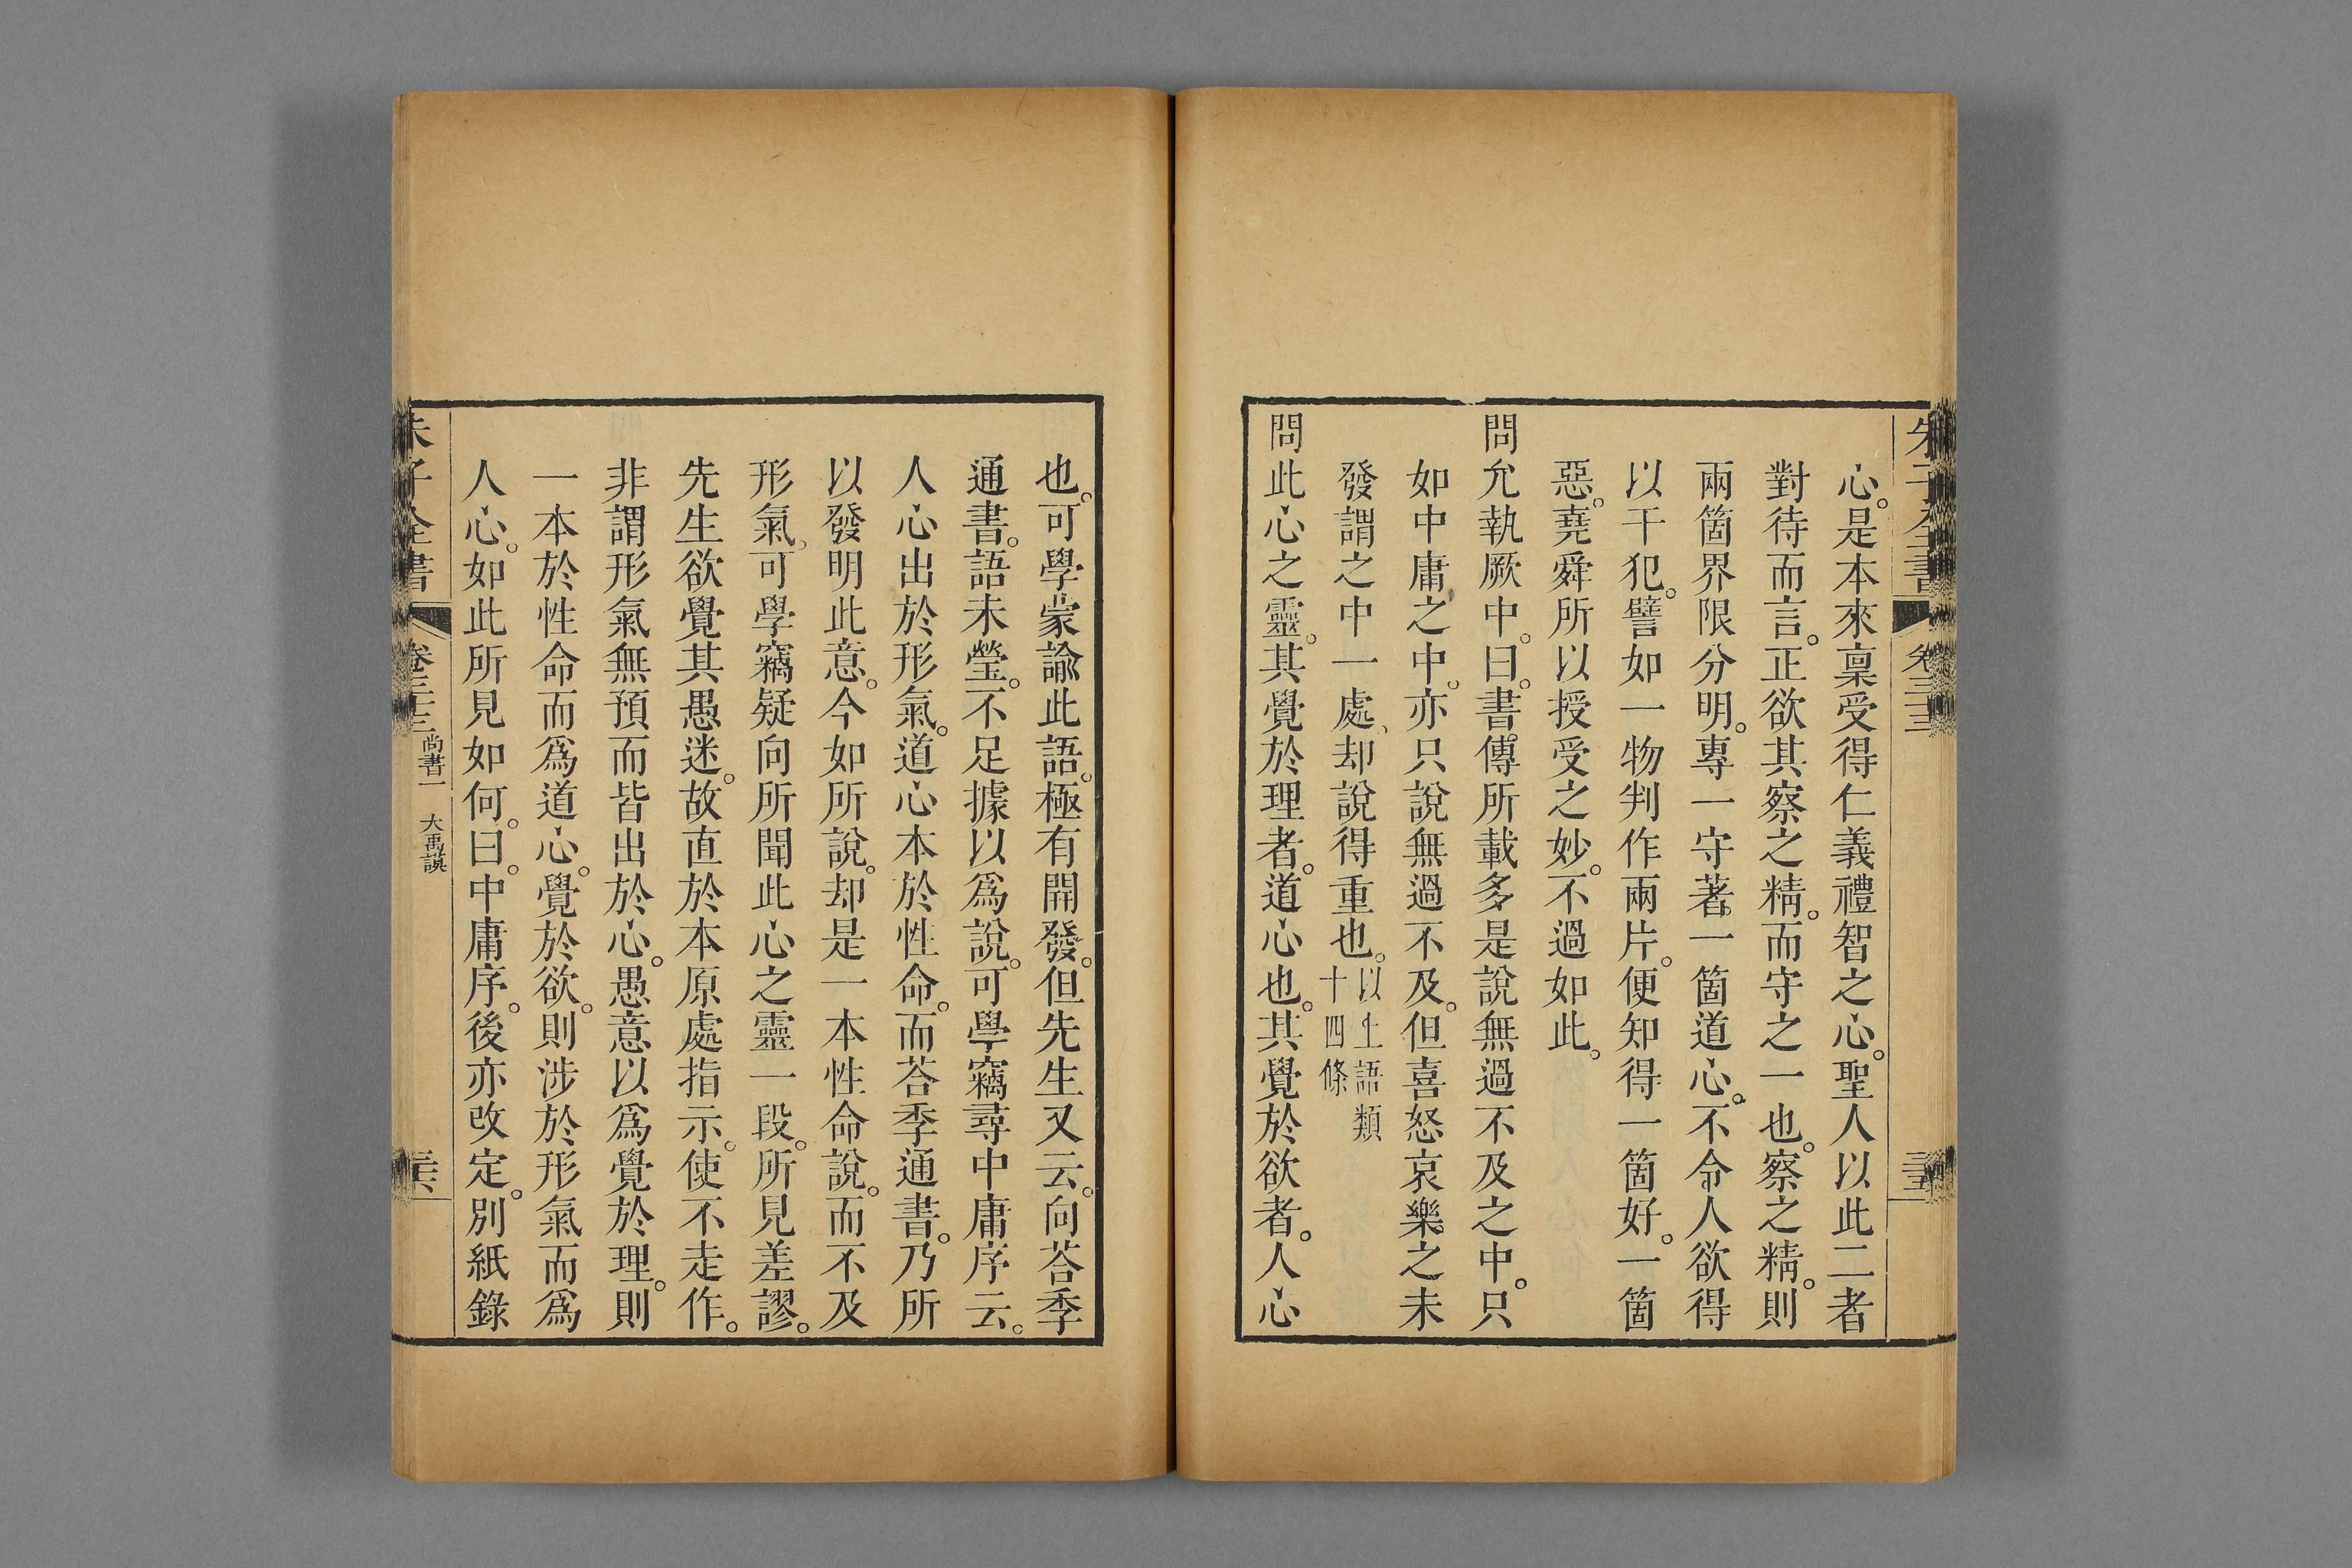 心。是本來稟受得仁義禮智之心。聖人以此二者
對待而言。正欲其察之精。而守之一也。察之精。則
兩箇界限分明。專一守著。一箇道心。不令人欲得
以干犯。譬如一物判作兩片。便知得一箇好。一箇
惡。堯舜所以授受之妙。不過如此。
問允執厥中。曰。書傳所載多是說無過不及之中。只
如中庸之中。亦只說無過不及。但喜怒哀樂之未
發謂之中一處、却說得重也。以上語類
十四條
問此心之靈。其覺於理者。道心也。其覺於欲者。人心
也。可學蒙諭此語。極有開發。但先生又云。向荅季
通書。語未瑩。不足據以爲說。可學竊尋中庸序云。
人心出於形氣。道心本於性命。而荅季通書。乃所
以發明此意。今如所說。却是一本性命說。而不及
形氣。可學竊疑向所聞此心之靈一段。所見差謬。
先生欲覺其愚迷。故直於本原處指示。使不走作。
非謂形氣無預而皆出於心。愚意以爲覺於理。則
一本於性命而爲道心。覺於欲。則涉於形氣而爲
人心。如此所見如何。曰。中庸序。後亦改定。別紙錄
朱子全書
卷三十三
尚書一 大禹謨